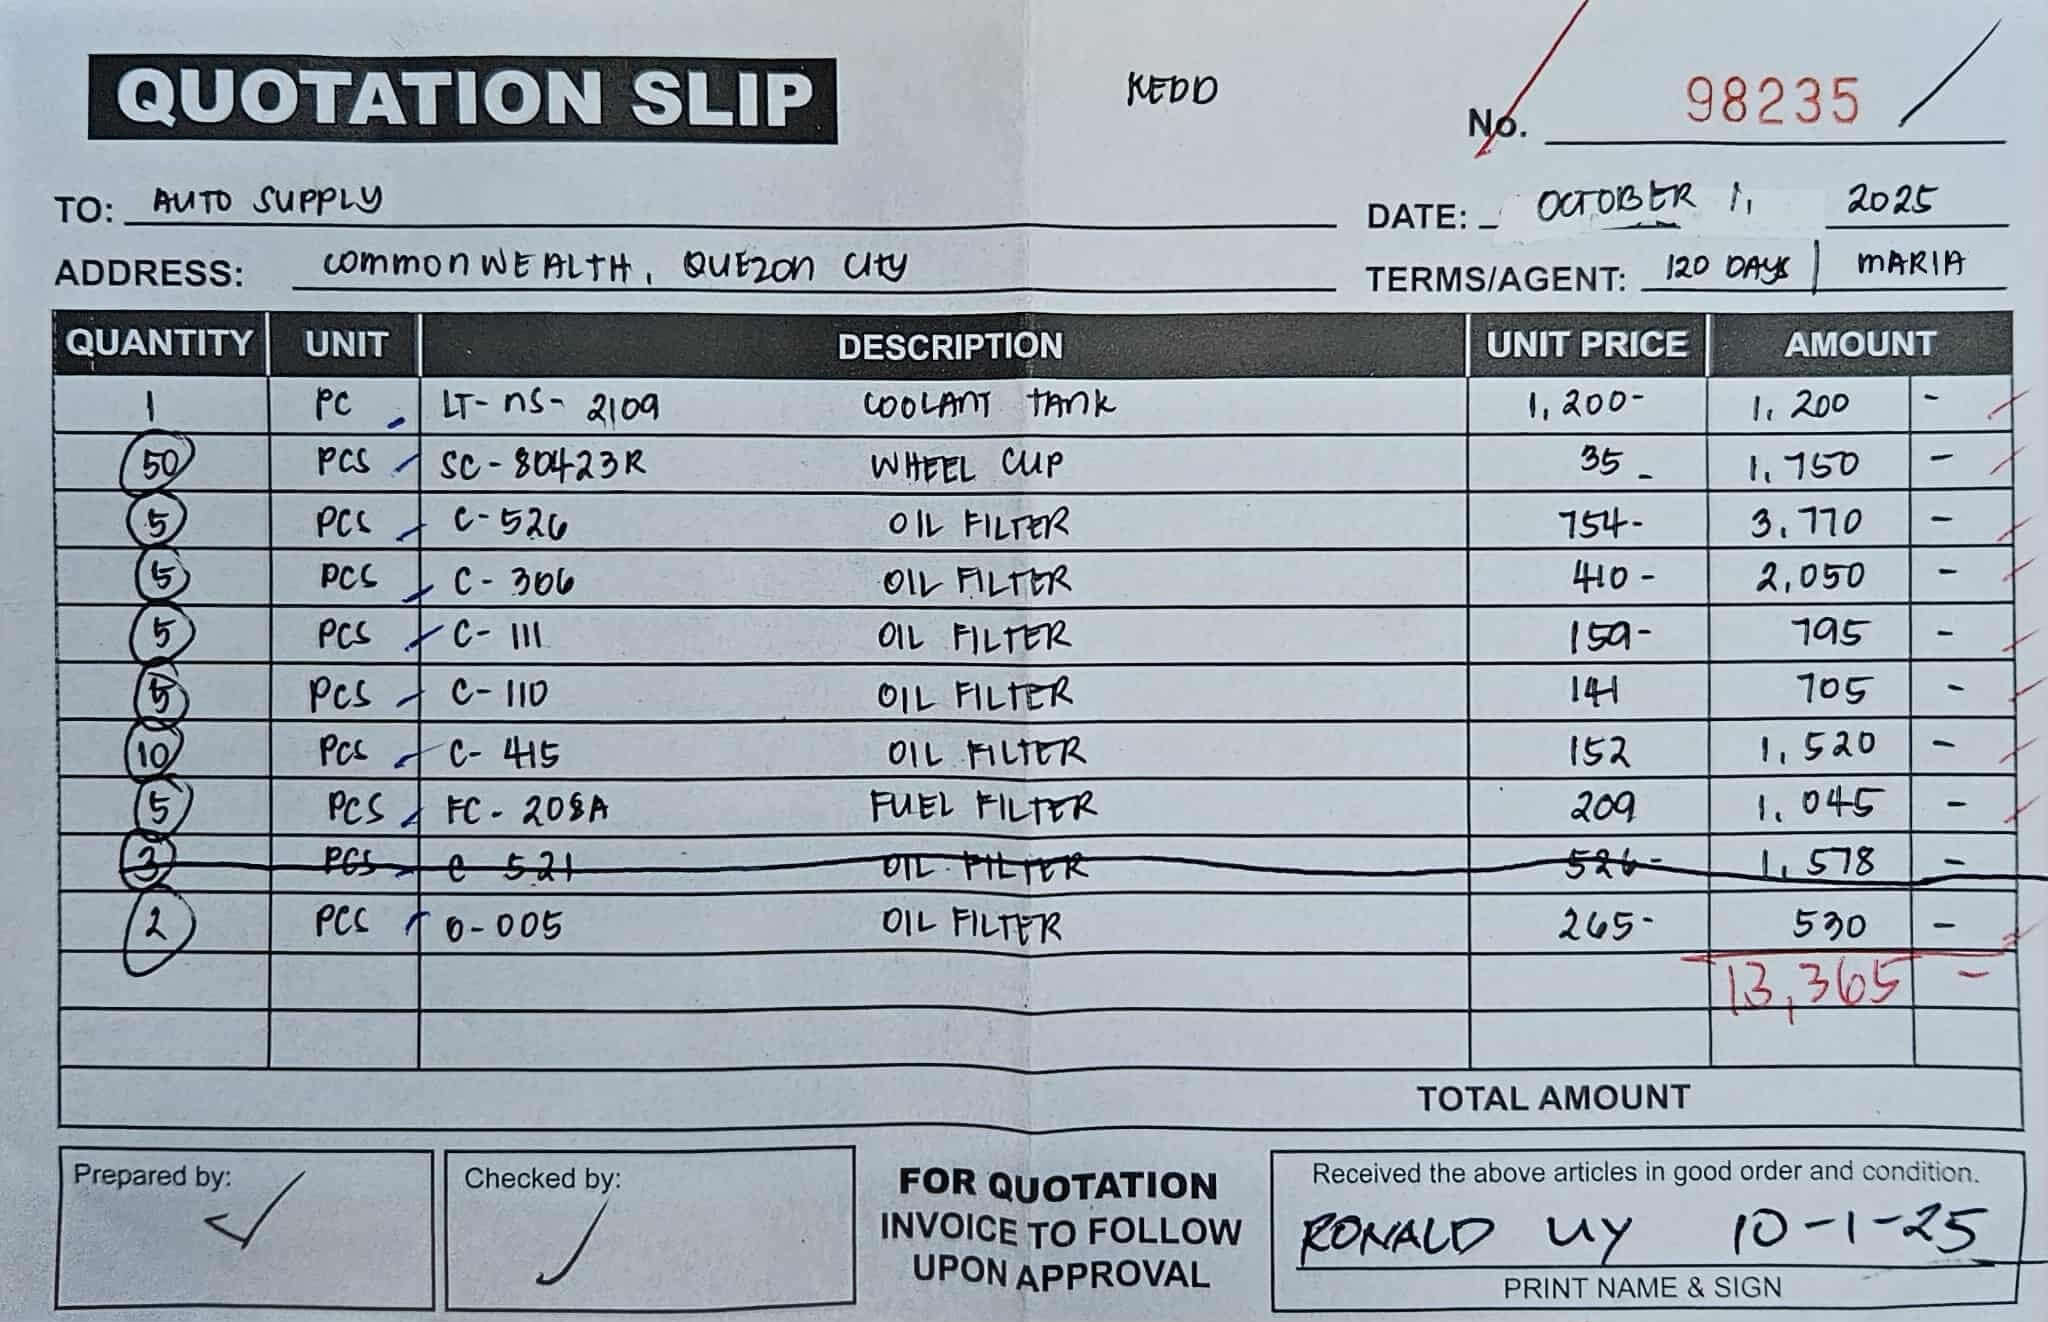 QUOTATION SLIP KEDD No. 98235
TO: AUTO SUPPLY DATE: OCTOBER 1, 2025
ADDRESS: COMMONWEALTH, QUEZON CITY TERMS/AGENT: 120 DAYS | MARIA
QUANTITY UNIT DESCRIPTION UNIT PRICE AMOUNT
1 PC LT-NS-2109 COOLANT TANK 1,200- 1,200 -
50 PCS SC-80423R WHEEL CLIP 35- 1,750 -
5 PCS C-526 OIL FILTER 754- 3,770 -
5 PCS C-306 OIL FILTER 410- 2,050 -
5 PCS C-111 OIL FILTER 159- 795 -
5 PCS C-110 OIL FILTER 141 705 -
10 PCS C-415 OIL FILTER 152 1,520 -
5 PCS FC-208A FUEL FILTER 209 1,045 -
3 PCS C-521 OIL FILTER 526- 1,578 -
2 PCS O-005 OIL FILTER 265- 530 -
13,365 -
TOTAL AMOUNT
Prepared by: Checked by: FOR QUOTATION INVOICE TO FOLLOW UPON APPROVAL
Received the above articles in good order and condition.
RONALD UY 10-1-25
PRINT NAME & SIGN